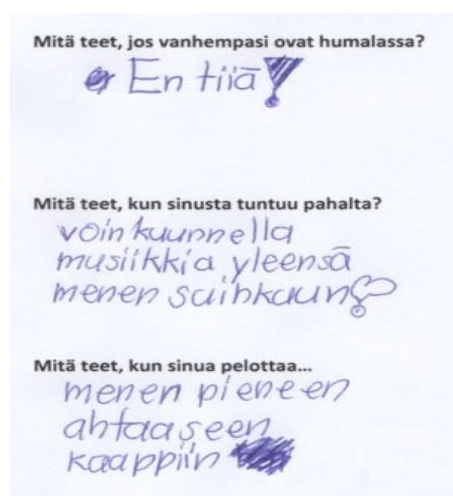 Mitä teet, jos vanhempasi ovat humalassa?
En tiiä!
Mitä teet, kun sinusta tuntuu pahalta?
voin kuunnella
musiikkia yleensä
menen suihkuun
Mitä teet, kun sinua pelottaa...
menen pieneen
ahtaaseen
kaappiin